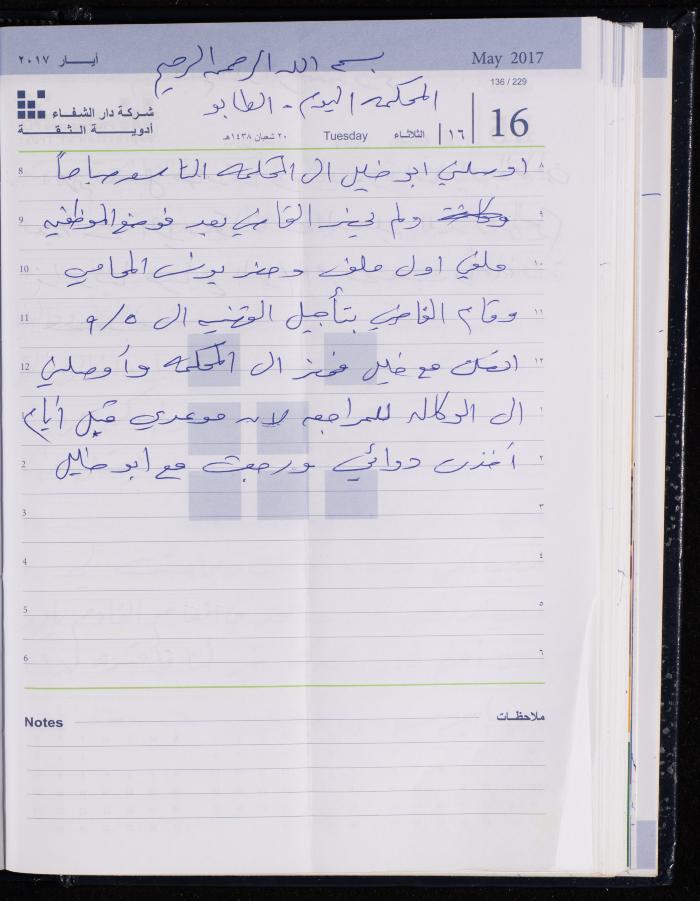 أيار ٢٠١٧
May 2017
بسم الله الرحمن الرحيم
136 / 229
المحكمه اليوم - الطابو
شركة دار الشفاء
أدويـة الثـقـة
٢٠ شعبان ١٤٣٨هـ
Tuesday
الثلاثاء
١٦
16
8 اوصلني ابو خليل الى المحكمه التاسعه صباحاً ٨
9 ولم يحضر القاضي بعد فوضع الموظفيه ٩
10 ملفي اول ملف وحضر يونس المحامي ١٠
11 وقام القاضي بتأجيل القضيه الى ٩/٥ ١١
12 اتصلت مع خليل فحضر الى المحكمه وأوصلني ١٢
1 الى الوكاله للمراجعه لانه موعدي قبل أيام ١
2 أخذت دوائي ورجعت مع ابو خليل ٢
3 ٣
4 ٤
5 ٥
6 ٦
Notes ملاحظـات